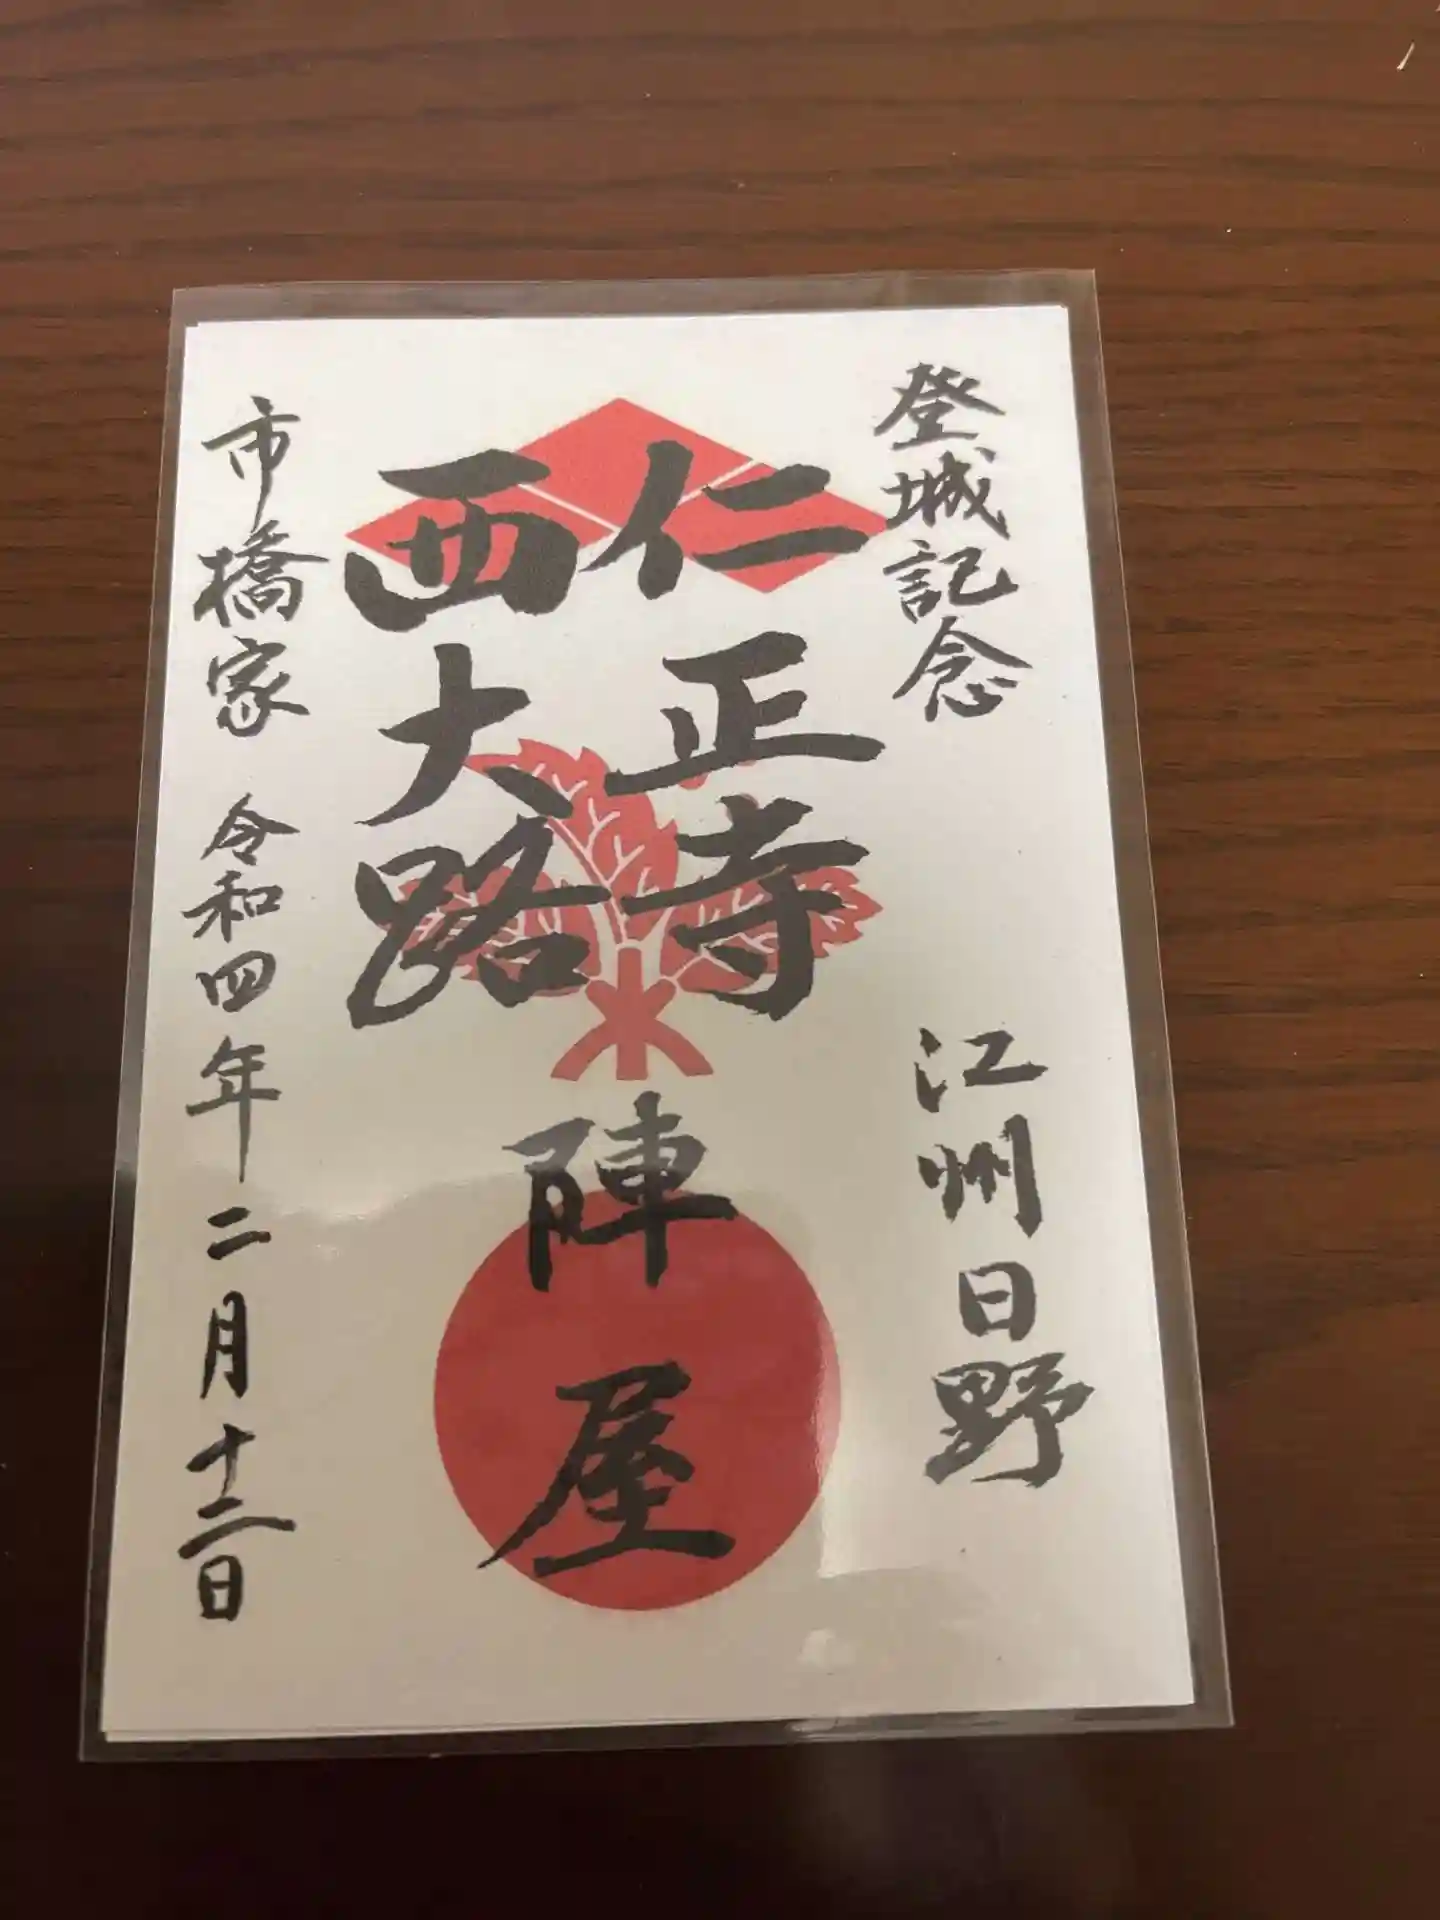 登城記念
江州日野
仁正寺
西大路
陣屋
市橋家 令和四年二月十二日